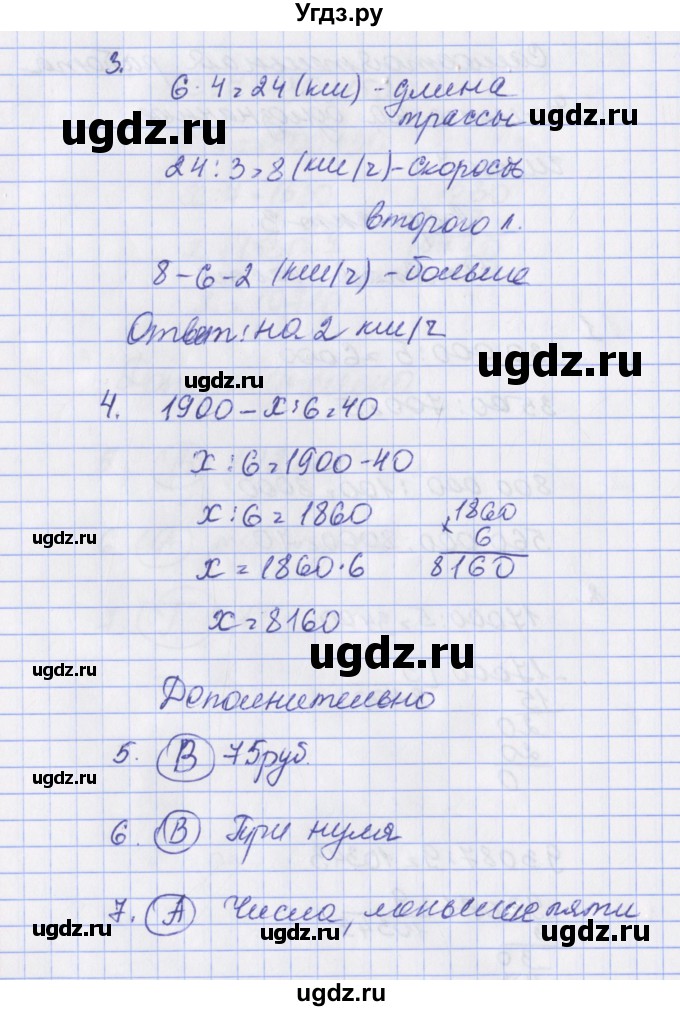 Угдз.ру
3.
6·4=24(км)-длина
трассы
ugdz.ru
ugdz.ru
24:3=8(км/ч)-скорость
ugdz.ru
ugdz.ru
второго л.
8-6-2 (км/ч) -больше
Ответ: на 2 км/ч
ugdz.ru
ugdz.ru
4. 1900-x:6=40
x:6=1900-40
ugdz.ru
x:6=1860
1860
× 6
8160
ugdz.ru
ugdz.ru
x=1860·6
x=8160
ugdz.ru
ugdz.ru
Дополнительно
5. В 75руб.
ugdz.ru
ugdz.ru
6. В Три нуля
7. А Числа, меньшие пяти
ugdz.ru
ugdz.ru
ugdz.ru